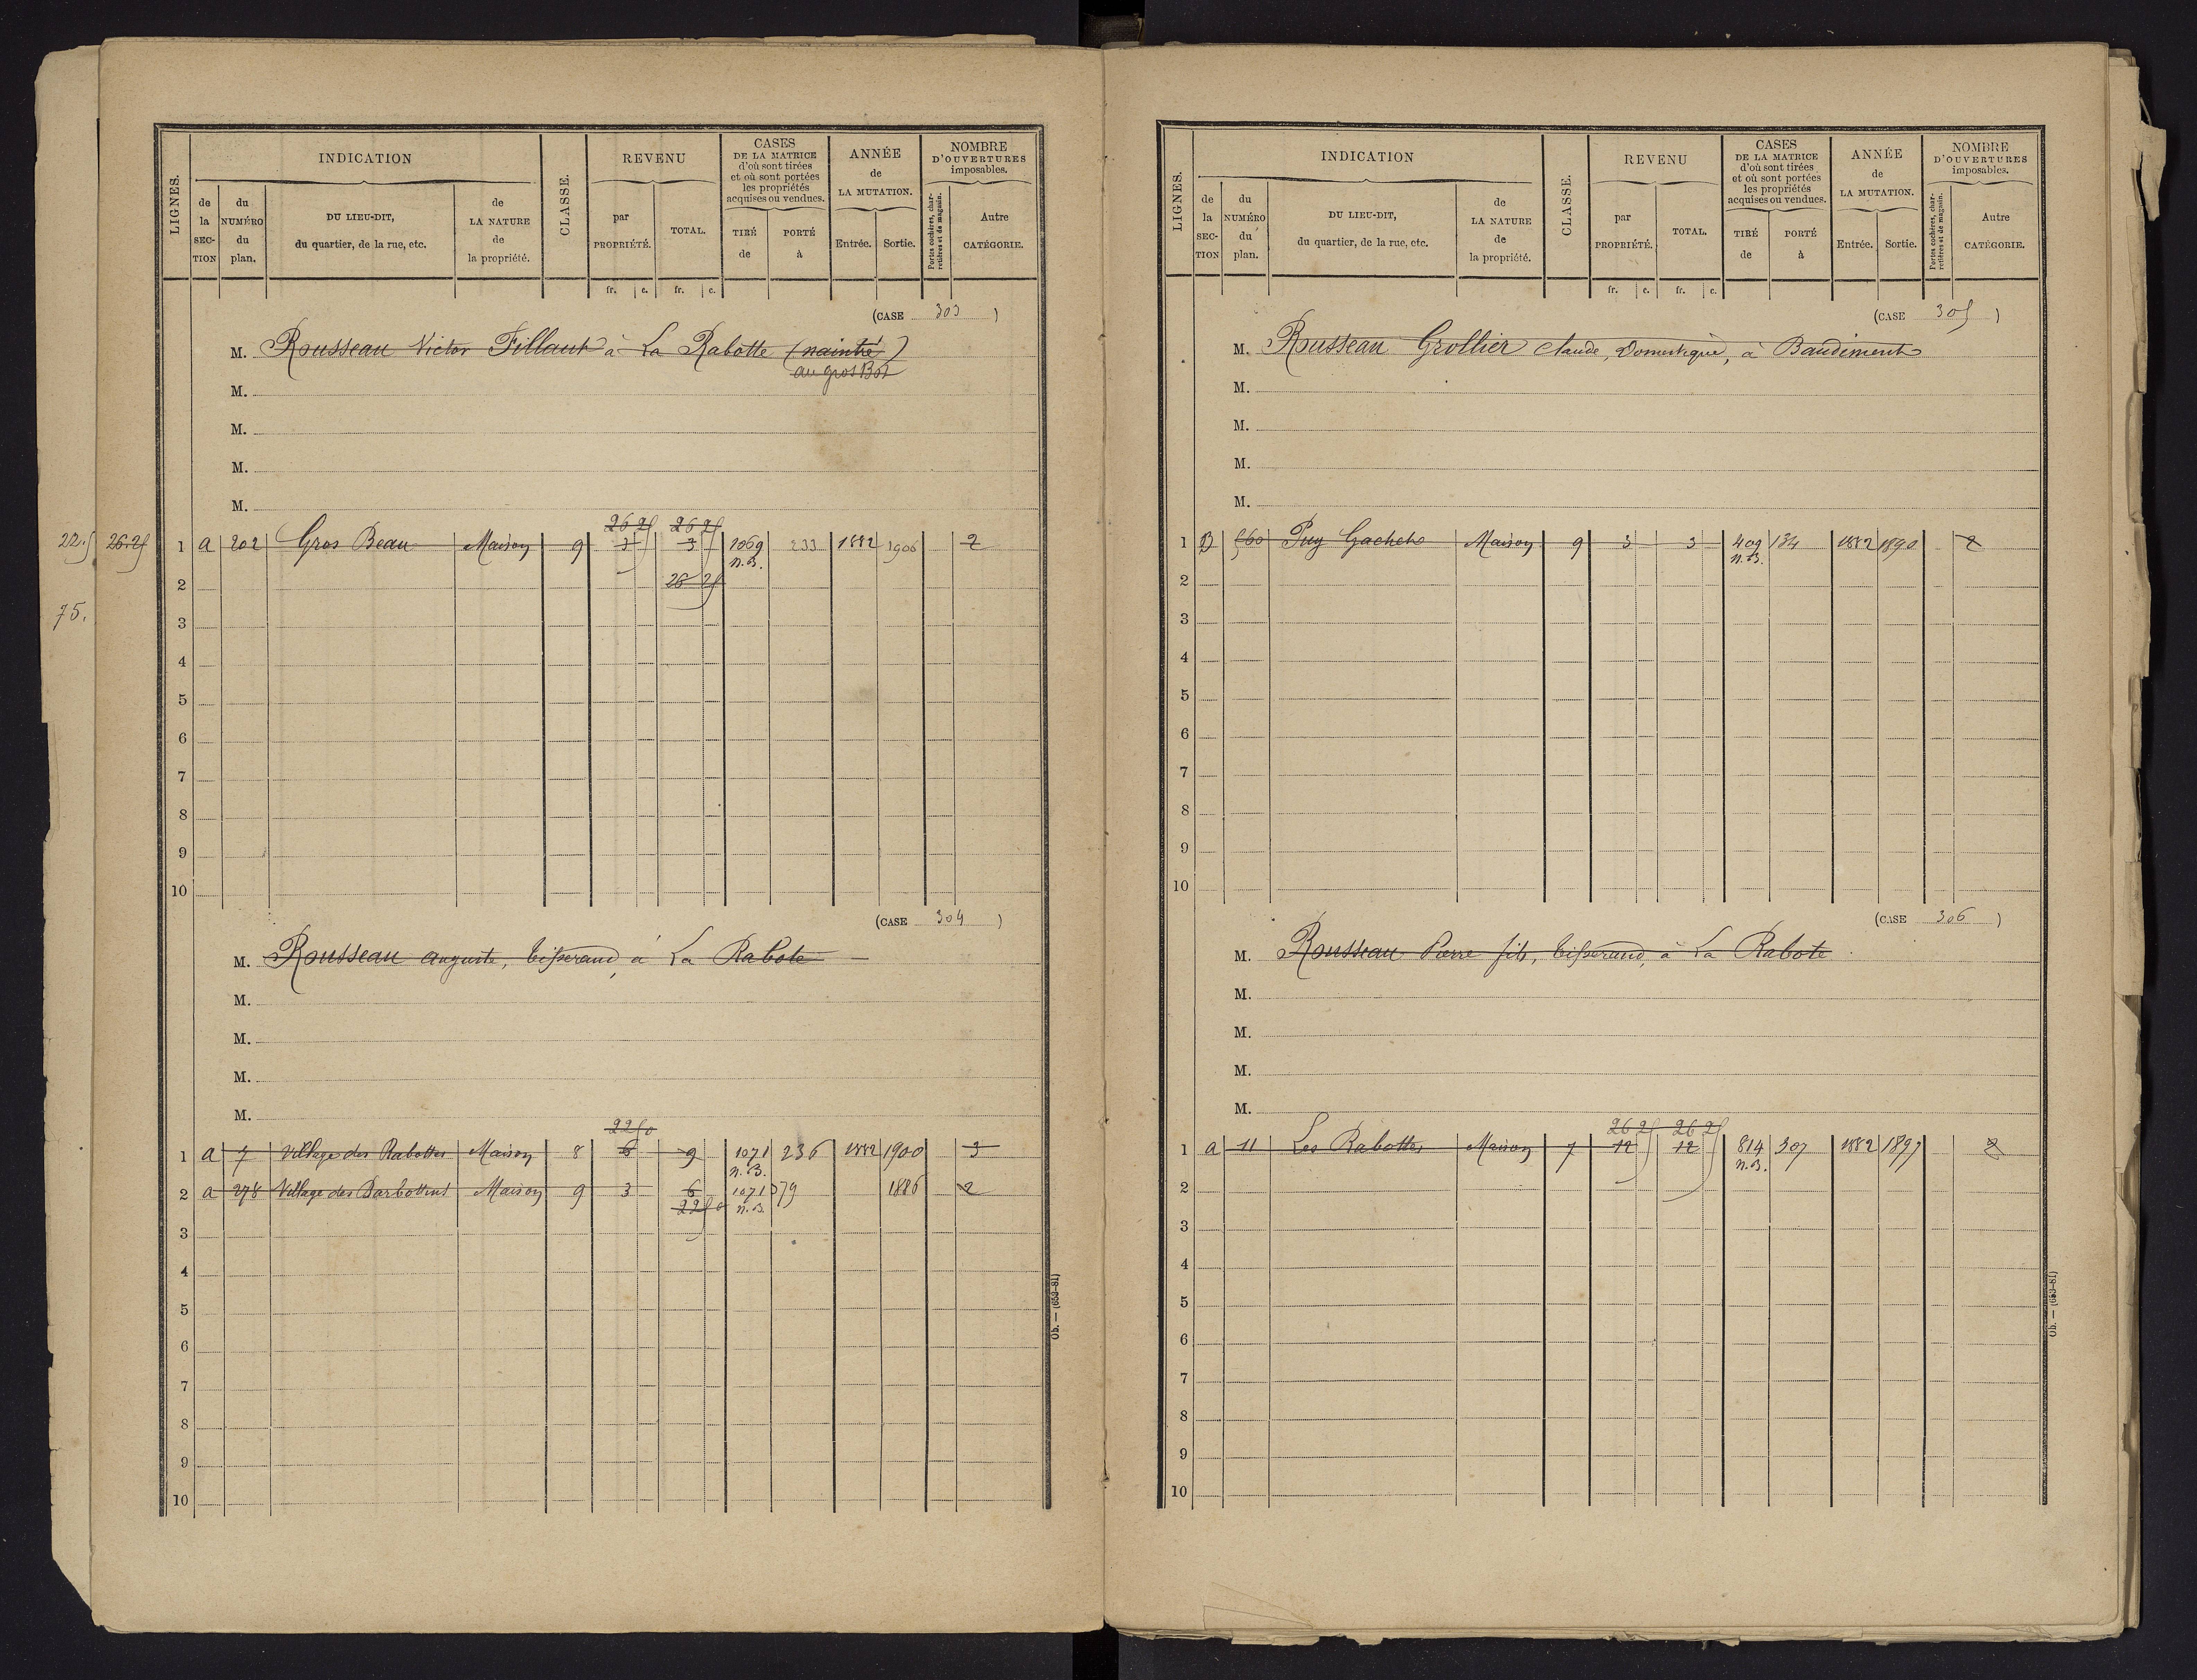 LIGNES.
INDICATION
de la SECTION
du NUMÉRO du plan.
DU LIEU-DIT, du quartier, de la rue, etc.
de LA NATURE de la propriété.
CLASSE.
REVENU
par PROPRIÉTÉ.
TOTAL.
CASES DE LA MATRICE d'où sont tirées et où sont portées les propriétés acquises ou vendues.
TIRÉ de
PORTÉ à
ANNÉE de LA MUTATION.
Entrée.
Sortie.
NOMBRE D'OUVERTURES imposables.
Portes cochères, charretières et de magasin.
Autre CATÉGORIE.
fr. c. fr. c.
(CASE 303)
M. Rousseau Victor Fillault à La Rabotte (naintré)
au gros Bos
M.
M.
M.
M.
26 25 26 25
22.5 26.25 1 a 202 Gros Beau Maison 9 3 3 1069 233 1882 1906 2
n.B.
2 26 25
75.
3
4
5
6
7
8
9
10
(CASE 304)
M. Rousseau auguste, tisserand, à La Rabote
M.
M.
M.
M.
22 50
1 a 7 Village des Rabottes Maison 8 6 9 1071 236 1882 1900 3
n.B.
2 a 278 Village des Barbottins Maison 9 3 6 1071 379 1886 2
22 50 n.B.
3
4
5
6
7
8
9
10
Ob. — (653-81)
LIGNES.
INDICATION
de la SECTION
du NUMÉRO du plan.
DU LIEU-DIT, du quartier, de la rue, etc.
de LA NATURE de la propriété.
CLASSE.
REVENU
par PROPRIÉTÉ.
TOTAL.
CASES DE LA MATRICE d'où sont tirées et où sont portées les propriétés acquises ou vendues.
TIRÉ de
PORTÉ à
ANNÉE de LA MUTATION.
Entrée.
Sortie.
NOMBRE D'OUVERTURES imposables.
Portes cochères, charretières et de magasin.
Autre CATÉGORIE.
fr. c. fr. c.
(CASE 305)
M. Rousseau Grollier Claude, Domestique, à Baudiment
M.
M.
M.
M.
1 B 560 Puy Gachet Maison 9 3 3 409 134 1882 1890 2
n.B.
2
3
4
5
6
7
8
9
10
(CASE 306)
M. Rousseau Pierre fils, tisserand, à La Rabote
M.
M.
M.
M.
26 25 26 25
1 a 11 Les Rabottes Maison 7 12 12 814 307 1882 1897 2
n.B.
2
3
4
5
6
7
8
9
10
Ob. — (653-81)